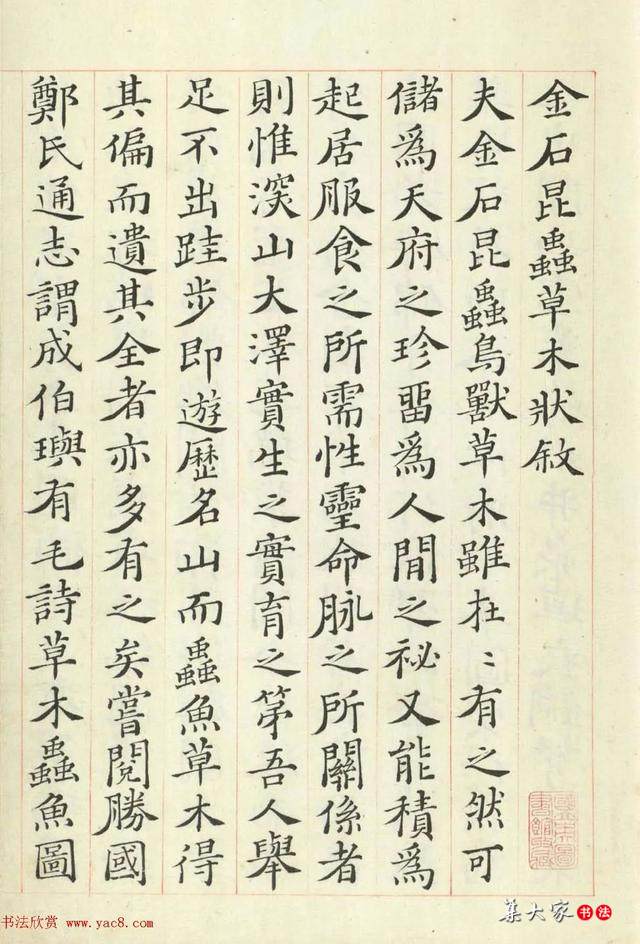 金石昆蟲草木狀敘
夫金石昆蟲鳥獸草木雖在〻有之然可
儲爲天府之珍畱爲人間之祕又能積爲
起居服食之所需性靈命脉之所關係者
則惟深山大澤實生之實育之第吾人舉
足不出跬步即遊歷名山而蟲魚草木得
其偏而遺其全者亦多有之矣嘗閱勝國
鄭氏通志謂成伯璵有毛詩草木蟲魚圖
书法欣赏 www.yac8.com
集大家书法